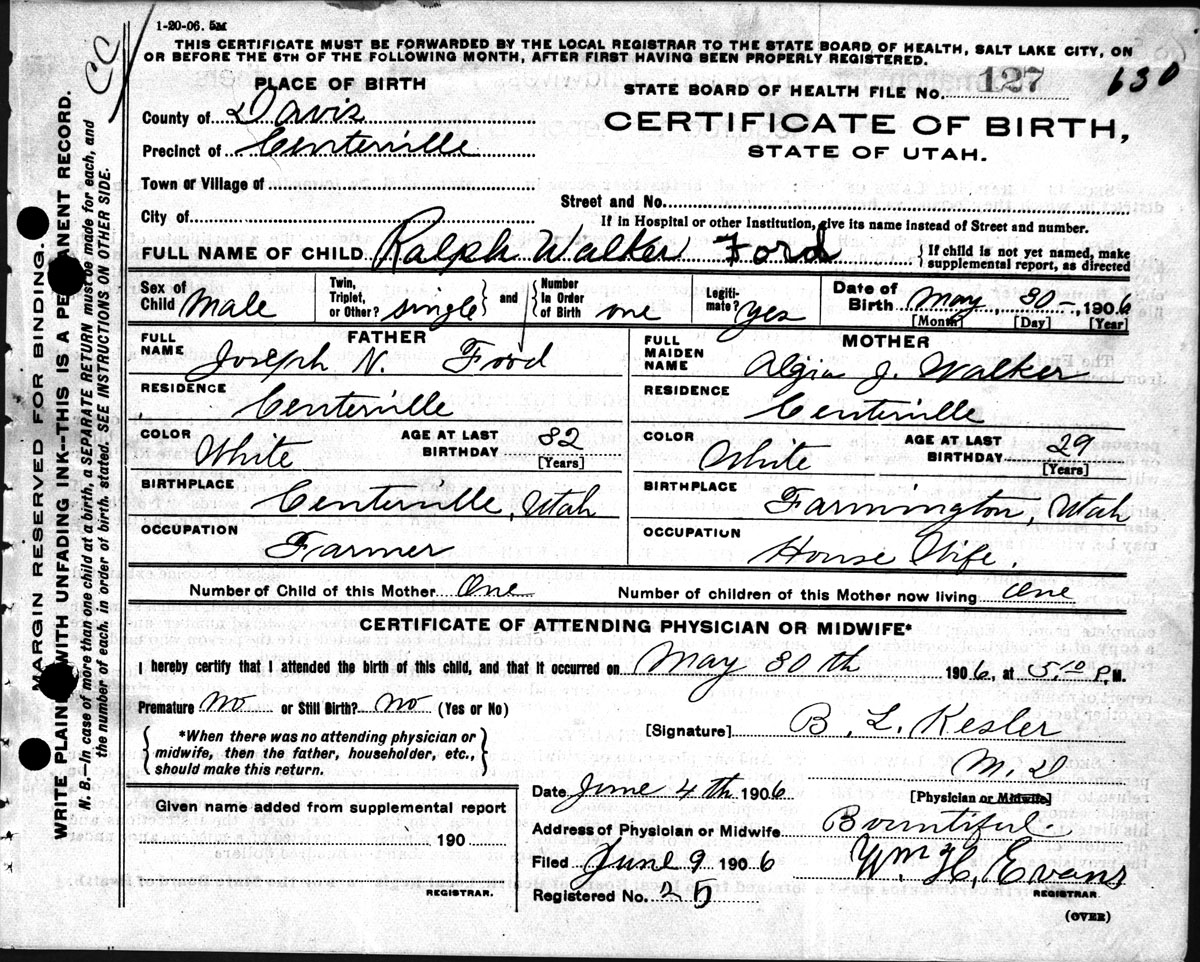 1-20-06. 5M
CC
THIS CERTIFICATE MUST BE FORWARDED BY THE LOCAL REGISTRAR TO THE STATE BOARD OF HEALTH, SALT LAKE CITY, ON
OR BEFORE THE 5TH OF THE FOLLOWING MONTH, AFTER FIRST HAVING BEEN PROPERLY REGISTERED.
PLACE OF BIRTH
STATE BOARD OF HEALTH FILE No. 127 630
County of Davis
CERTIFICATE OF BIRTH,
Precinct of Centerville
STATE OF UTAH.
Town or Village of
Street and No.
City of
If in Hospital or other Institution, give its name instead of Street and number.
FULL NAME OF CHILD Ralph Walker Ford { If child is not yet named, make
supplemental report, as directed
Sex of Child Male
Twin, Triplet, or Other? single } and { Number In Order of Birth one
Legiti- mate? yes
Date of Birth May 30 , 1906
[Month] [Day] [Year]
FATHER
FULL NAME Joseph N. Ford
RESIDENCE Centerville
COLOR White AGE AT LAST BIRTHDAY 32 [Years]
BIRTHPLACE Centerville, Utah
OCCUPATION Farmer
MOTHER
FULL MAIDEN NAME Algia J. Walker
RESIDENCE Centerville
COLOR White AGE AT LAST BIRTHDAY 29 [Years]
BIRTHPLACE Farmington, Utah
OCCUPATION House Wife.
Number of Child of this Mother One Number of children of this Mother now living one
CERTIFICATE OF ATTENDING PHYSICIAN OR MIDWIFE*
I hereby certify that I attended the birth of this child, and that it occurred on May 30th 1906, at 5.10 P.M.
Premature no or Still Birth? no (Yes or No)
{ *When there was no attending physician or
midwife, then the father, householder, etc.,
should make this return. }
[Signature] B. L. Kesler
M. D
Date June 4th 1906 [Physician or Midwife]
Address of Physician or Midwife Bountiful
Filed June 9 1906 Wm H. Evans
REGISTRAR
Registered No. 25
(OVER)
Given name added from supplemental report
190
REGISTRAR.
MARGIN RESERVED FOR BINDING.
WRITE PLAINLY WITH UNFADING INK--THIS IS A PERMANENT RECORD.
N. B.—In case of more than one child at a birth, a SEPARATE RETURN must be made for each, and
the number of each, in order of birth, stated. SEE INSTRUCTIONS ON OTHER SIDE.